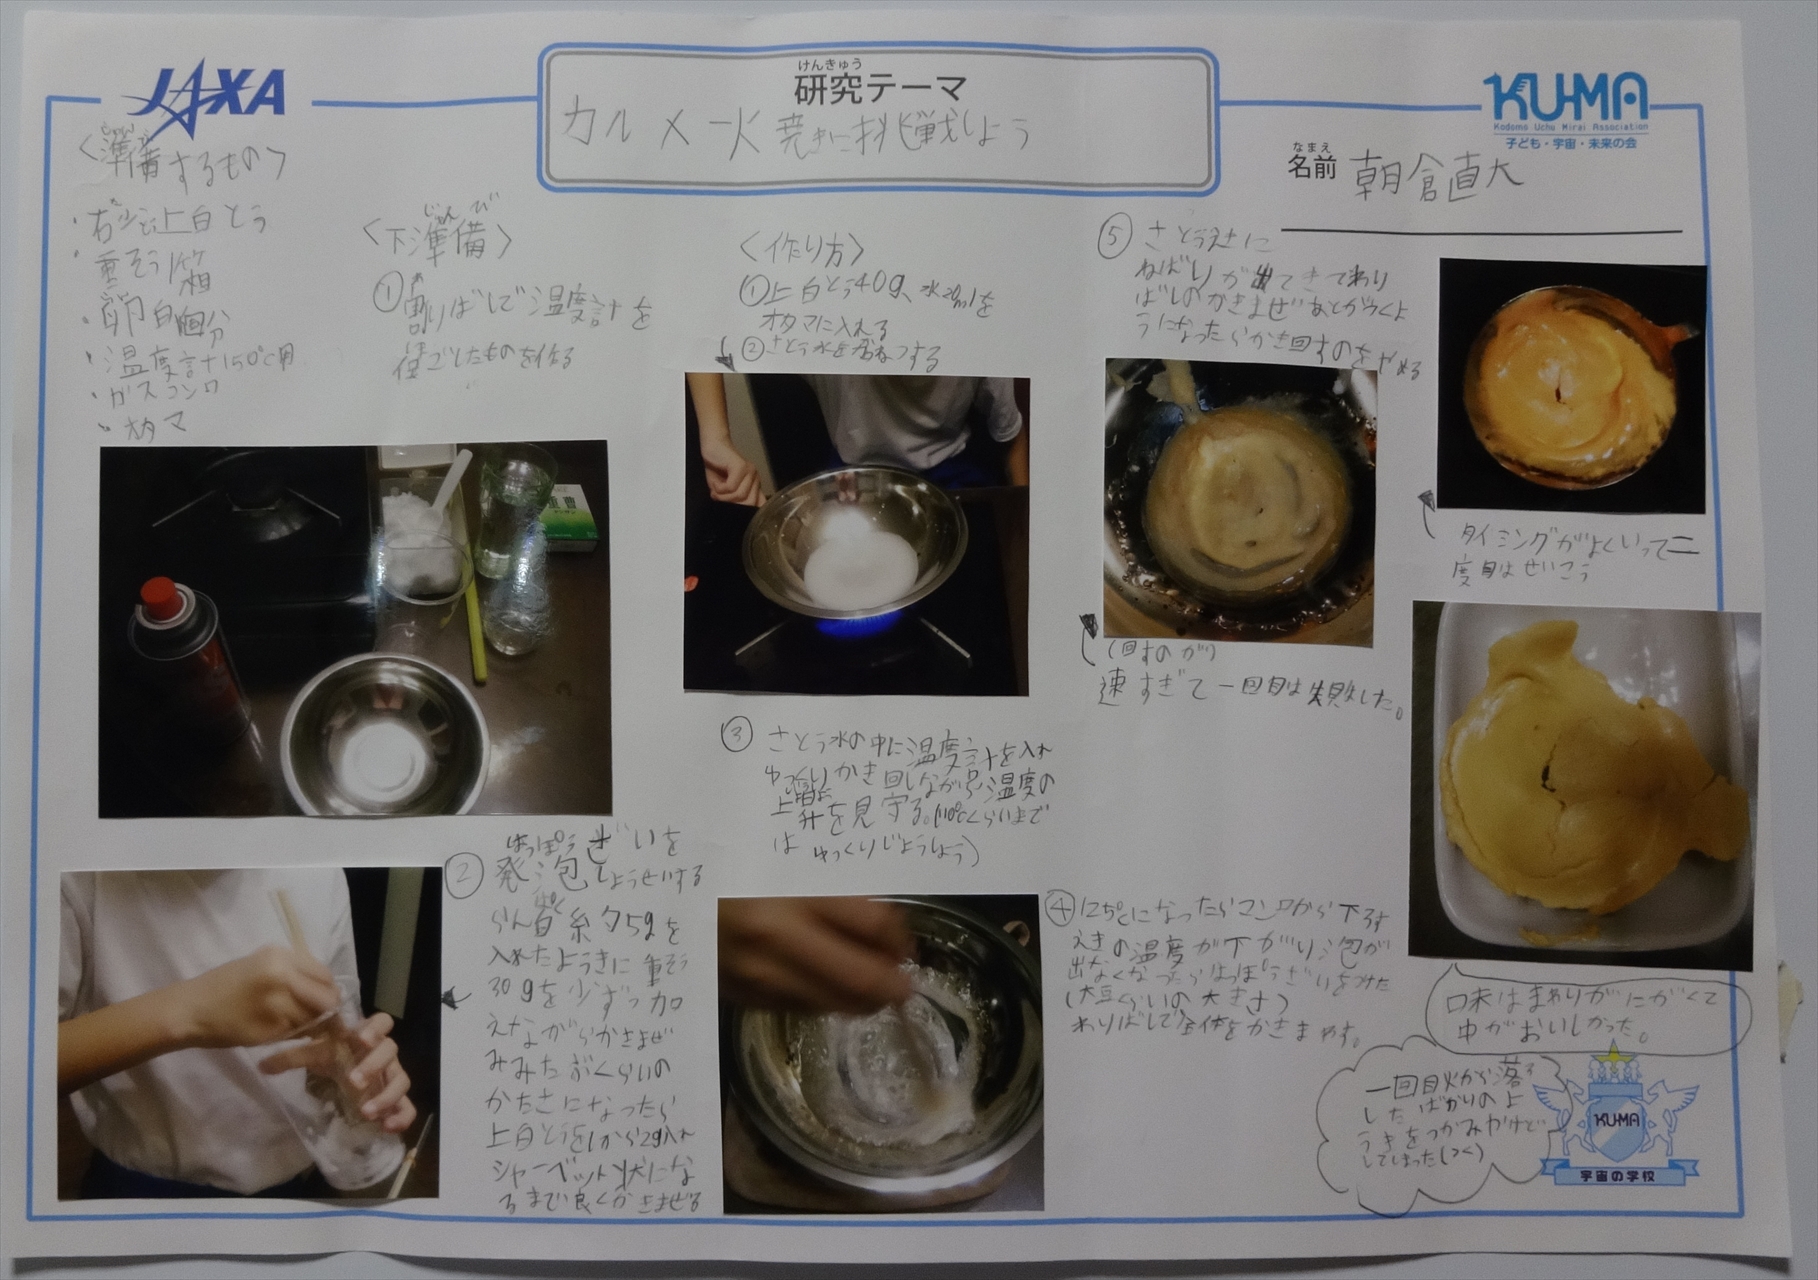 JAXA
けんきゅう
研究テーマ
カルメ火焼きに挑戦しよう
KU-MA
Kodomo Uchu Mirai Association
子ども・宇宙・未来の会
なまえ
名前 朝倉直大
<準備するもの>
上白とう
・重そう1箱
・卵白1個分
・温度計150℃用
・ガスコンロ
・オタマ
じゅんび
<下準備>
①割りばしで温度計を
ほごしたものを作る
はっぽうざいを
②発泡しょうせいする
らん白約5gを
入れたようきに重そう
30gを少ずつ加
えながらかきまぜ
みみたぶくらいの
かたさになったら
上白とうを1から2g入れ
シャーベット状にな
るまで良くかきまぜる
重曹
<作り方>
①上白とう40g、水20mlを
オタマに入れる
②さとう水を
③さとう水の中に温度計を入れ
ゆっくりかき回しながら温度の
上昇を見守る。(110℃くらいまで
はゆっくりじょうしょう)
④125℃になったらコンロから下ろす
えきの温度が下がり泡が
出なくなったらはっぽうざいをつけた
(大豆くらいの大きさ)
わりばしで全体をかきまわす。
⑤さとうえきに
ねばりが出てきてわり
ばしのかきまぜあとがつくよ
うになったらかき回すのをやめる
(回すのが)
速すぎて一回目は失敗した。
タイミングがよくいって二
度目はせいこう
味はまわりがにがくて
中がおいしかった。
一回目火から落ろ
したばかりのよ
うきをつかみやけど
してしまった(つく)
KU-MA
宇宙の学校